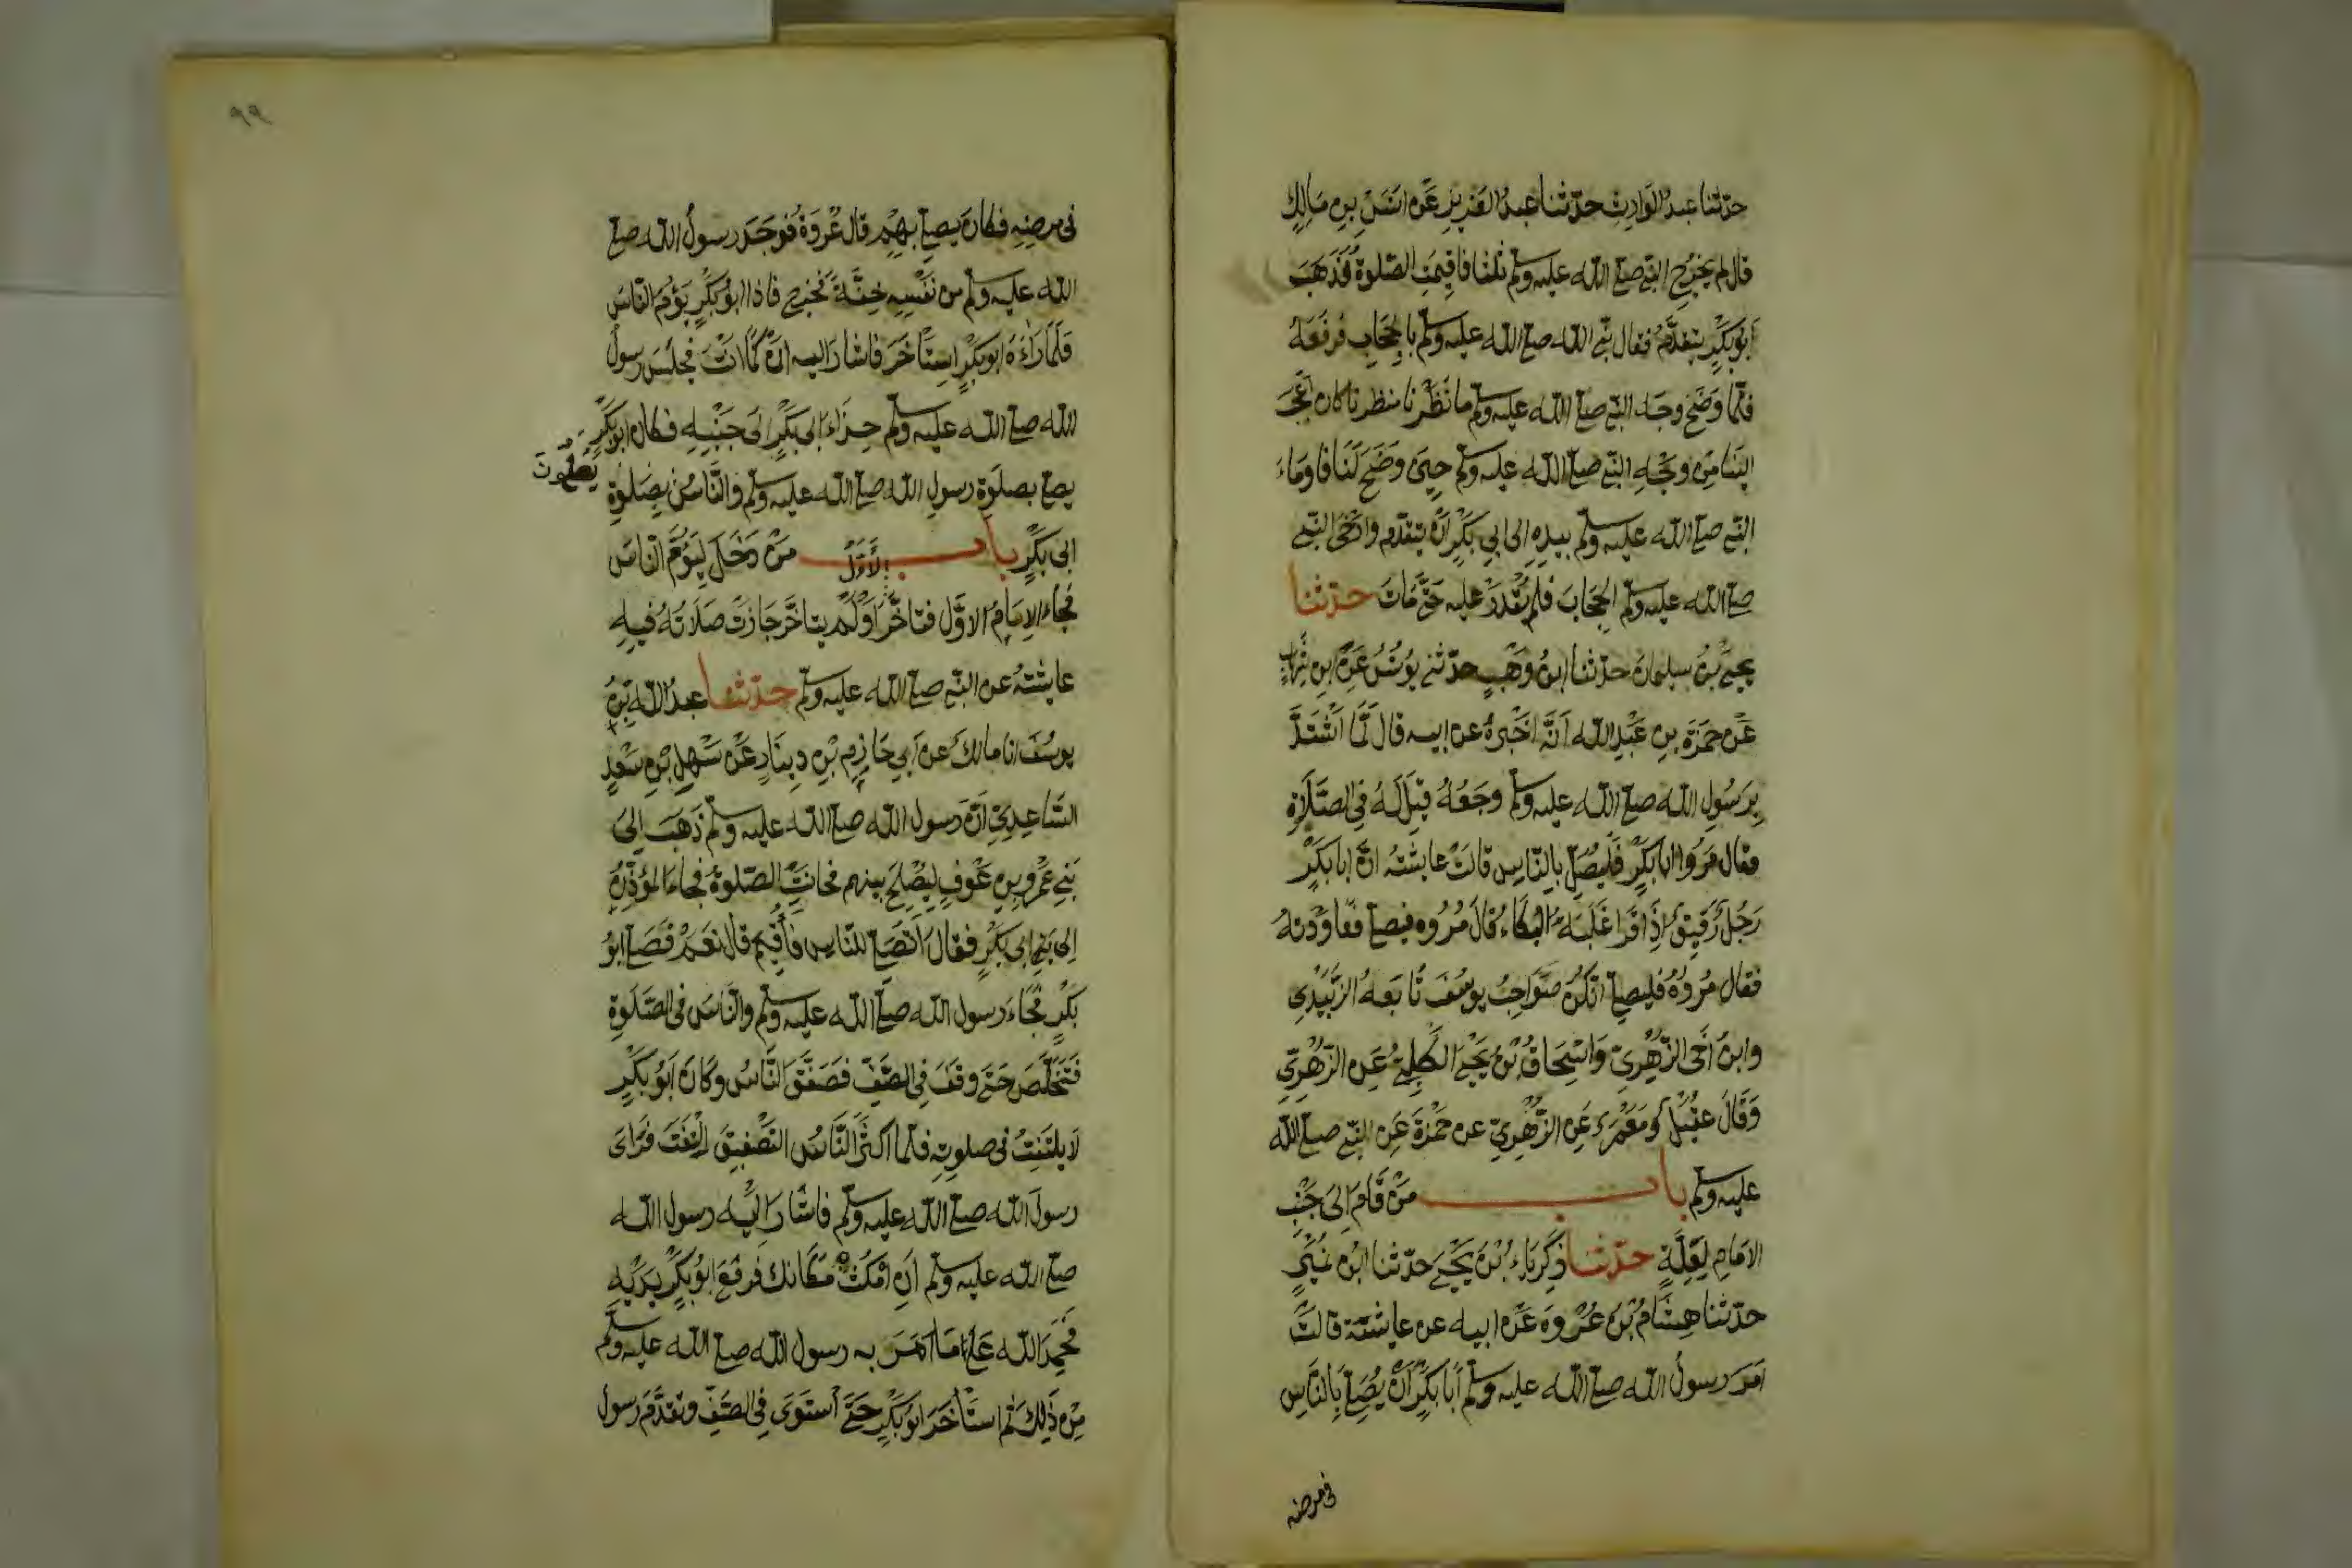 حدّثنا عبدُ الوَارِثِ حدّثنا عبدُ العَزِيزِ عَنْ اَنَسِ بنِ مَالِكٍ
قال لم يَخرُجِ النّبي صلى الله عليه وسلم ثلثا فاقِيمَتِ الصّلوةُ فَذَهَبَ
اَبُوبَكْرٍ يتقدّمُ فقال نبي الله صلى الله عليه وسلم بالحِجَابِ فرفَعَهُ
فلمّا وَضَحَ وجه النبي صلى الله عليه وسلم ما نَظَرْنا منظرا كان اَعْجَبَ
اِلينا مِنْ وجْهِ النّبي صلى الله عليه وسلم حِينَ وَضَحَ لَنَا فاَومَاءَ
النّبي صلى الله عليه وسلم بيدِهِ الى ابي بَكْرٍ اَنْ يتقدّم وارْخَى النّبي
صلى الله عليه وسلم الحِجَابَ فلم يُقْدَرْ عليه حَتَّى مَاتَ حدّثنا
يحيَى بنُ سليمانَ حدّثنا ابنُ وَهْبٍ حدّثني يُونُسُ عَنِ ابنِ شِهَابٍ
عَنْ حَمْزَةَ بنِ عَبْدِ الله اَنَّهُ اَخْبَرَهُ عن ابيه قال لَمَّا اَشْتَدَّ
بِرَسُولِ الله صلى الله عليه وسلم وَجَعُهُ قِيْلَ لَهُ فِي الصَّلَاةِ
فقال مُرُوا ابا بَكْرٍ فَلْيُصَلِّ بالنّاسِ قالَتْ عايشَةُ انّ ابا بَكْرٍ
رَجُلٌ رَقِيقٌ اِذَا قَرَا غَلَبَهُ البُكَاءُ قالَ مُرُوه فيصلي فعَاوَدَتْهُ
فقال مُرُوهُ فليصلي انّكُنّ صَوَاحِبُ يوسُفَ تَابَعهُ الزُّبَيْدِي
وابنُ اَخِي الزُّهْرِيِّ وَاِسْحَاقُ بْنُ يَحْيَى الكَلْبِيُّ عَنِ الزُّهْرِيّ
وَقَالَ عقَيْلٌ ومَعْمَرٌ عَنِ الزُّهْرِيِّ عن حَمْزَةَ عَنِ النّبي صلى الله
عليه وسلم باب مَنْ قَامَ اِلَى جَنْبِ
الامَامِ لِعِلَّةٍ حدّثنا زَكَرِيَاءُ بْنُ يَحْيَى حدّثنا ابْنُ نُمَيْرٍ
حدّثنا هِشَامُ بْنُ عُرْوَةَ عَنْ ابيه عن عايشة قالَتْ
اَمَرَ رسولُ الله صلى الله عليه وسلم اَبا بَكْرٍ اَنْ يُصَلِّيَ بِالنَّاسِ
فى مرضه
٩٩
فى مرضِهِ فكانَ يصلى بِهِمْ قال عُرْوَةُ فوَجَدَ رسولُ الله صلى
الله عليه وسلم من نَفْسِهِ خِفَّةً فَخرج فاذا ابُو بَكْرٍ يَؤُمُ النّاسَ
فلمّا رَاٰهُ ابو بَكْرٍ اِسْتَأخَرَ فاشارَ اليه اَنْ كَمَا انْتَ فجلَسَ رسولُ
الله صلى الله عليه وسلم حِذَاءَ ابى بَكْرٍ الَى جَنْبِهِ فكان ابُو بَكْرٍ
يصلى بصلوةِ رسولِ الله صلى الله عليه وسلم والنَّاسُ يصلّونَ بصَلوةِ
ابى بَكْرٍ باب مَنْ دَخَلَ لِيَؤُمَّ النّاسَ
فجاءَ الاِمَامُ الاَوَّلُ فتاَخَّرَ الاَوَّلُ اَوْ لَمْ يتاخَّرْ جَازَتْ صَلَاتُهُ فيهِ
عايشَةُ عن النّبي صلى الله عليه وسلم حدّثنا عبدُ الله بْنُ
يوسُفَ انا مالكٌ عن اَبِي حَازِمِ بْنِ دِينَارٍ عَنْ سَهْلِ بْنِ سَعْدٍ
السَّاعِدِيّ اَنّ رسول الله صلى الله عليه وسلم ذَهَبَ اِلَى
بَنِي عَمْرِو بنِ عَوْفٍ لِيُصْلِحَ بينهم فحانَتِ الصّلوةُ فجاءَ المؤذِّنُ
الى ابى بَكْرٍ فقال اَتُصَلّي للنّاسِ فَاُقِيمُ قال نَعَمْ فَصَلى ابُو
بَكْرٍ فجاءَ رسول الله صلى الله عليه وسلم والنَّاسُ فى الصّلوةِ
فَتَخَلَّصَ حَتّى وقَفَ فِي الصَّفِّ فَصَفَّقَ النَّاسُ وكَانَ اَبُو بَكْرٍ
لَا يلتَفِتُ فى صلوتِهِ فلمّا اكثَرَ النَّاسُ التّصْفِيقَ الْتفَتَ فرَاَى
رسولَ الله صلى الله عليه وسلم فاشَارَ اِلَيْهِ رسولُ الله
صلى الله عليه وسلم اَنِ اَمْكُثْ مَكَانَكَ فَرفعَ ابُو بَكْرٍ يَدَيْهِ
فَحَمِدَ الله عَلَى مَا اَمَرَ به رسول الله صلى الله عليه وسلم
مِنْ ذٰلِكَ ثم اسْتَأخَرَ ابُو بَكْرٍ حَتَّى اسْتَوَى فِي الصَّفِّ وتقَدَّمَ رسولُ